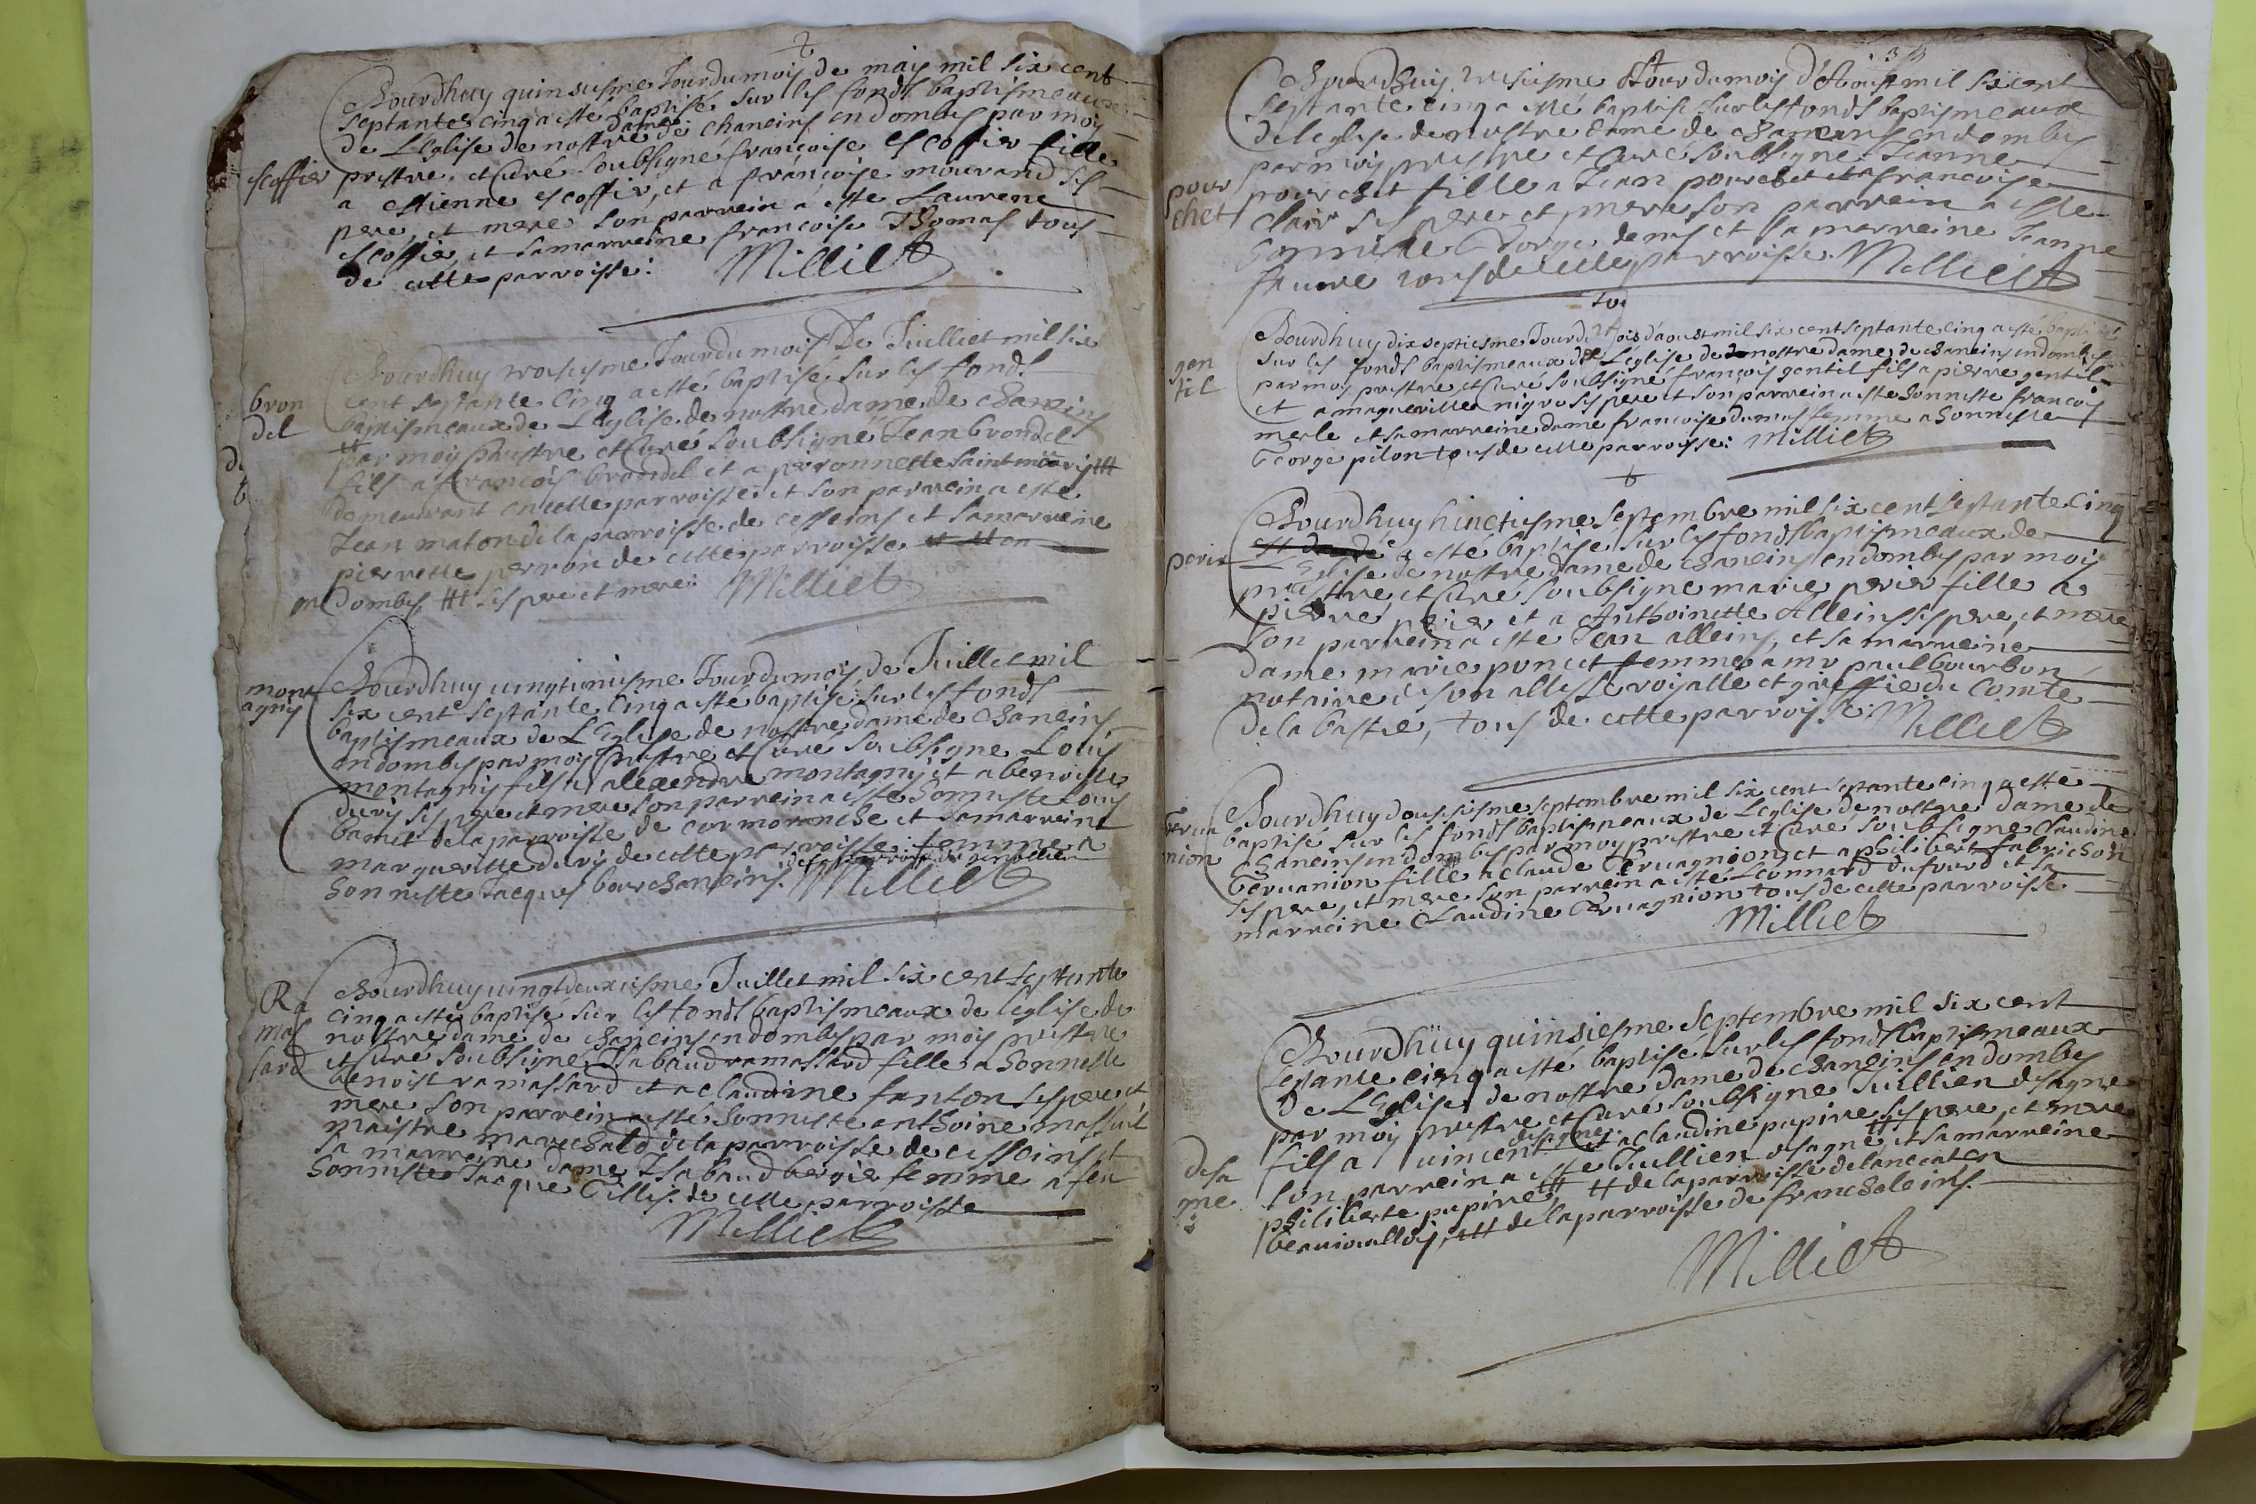 Aourdhuy quinsiesme Jour du mois de may mil six cent
septante cinq a esté baptisé sur les fonds baptismeaux
de L'Eglise de nostre dame de chaneins en dombes par moy
escoffier
prestre et Curé soubsigné françoise escoffier fille
a estienne escoffier, et a françoise mourand ses
pere, et mere son parrein a esté Laurent
escoffier, et sa marreine françoise Thomas tous
de cette parroisse: Milliet
Aourdhuy troisiesme Jour du mois De Juilliet mil six
cent septante Cinq a esté baptisé sur les fonds
bron
del
baptismeaux de L'Eglise de nostre dame de chaneins
par moy prestre et Curé soubsigné Jean brondel
fils a françois brondel et a peronnette saint
demeurant en cette parroisse et son parrein a esté
Jean maton de la parroisse de cesseins et sa marreine
pierrette perron de cette parroisse
en Dombes ses pere et mere: Milliet
mont
agny
Aourdhuy vingtuniesme Jour du mois de Juillet mil
six cent septante Cinq a esté baptisé sur les fonds
baptismeaux de L'Eglise de nostre dame de chaneins
en dombes par moy prestre et Curé soubsigné Louis
montagny fils a alexendre montagny et a benoiste
dury ses pere et mere son parrein a esté honneste Louis
barret de la parroisse de cormoranche et sa marreine
margueritte dury de cette parroisse femme a
honneste Jacques bourchaneins. Milliet
Ra
mas
sard
Aourdhuy vingtdeuxiesme Juillet mil six cent septante
cinq a esté baptisé sur les fonds baptismeaux de L'eglise de
nostre dame de chaneins en dombes par moy prestre
et Curé soubsigné Isabaud ramassard fille a honneste
benoist ramassard et a claudine fanton ses pere et
mere son parrein a esté honneste anthoine
maistre marechald de la parroisse de cesseins et
sa marreine dame Isabaud bergier femme a feu
honneste Jacque Gillet de cette parroisse
Milliet
Aourdhuy tresiesme Jour du mois d'Aoust mil six cent
septante cinq a esté baptisé sur les fonds baptismeaux
de l'Eglise de nostre dame de chaneins en dombes
pour
chet
par moy prestre et Curé soubsigné Jeanne
pourchet fille a Jean pourchet et a françoise
clair ses pere et mere son parrein a esté
honneste George demes et sa marreine Jeanne
faure tous de cette parroisse. Milliet
gen
til
Aourdhuy dix septiesme Jour du mois d'aoust mil six cent septante cinq a esté baptisé
sur les fonds baptismeaux de L'eglise de nostre dame de chaneins en dombes
par moy prestre et Curé soubsigné françois gentil fils a pierre gentil
et a nigro ses pere et son parrein a esté honneste françois
merle et sa marreine dame françoise dumas femme a honneste
George pilon tous de cette parroisse: Milliet
perier
Aourdhuy huictiesme septembre mil six cent septante Cinq
a esté baptisé sur les fonds baptismeaux de
L'Eglise de nostre dame de chaneins en dombes par moy
prestre et Curé soubsigné marie perier fille a
pierre perier et a Anthoinette alleins ses pere, et mere
son parrein a esté Jean alleins, et sa marreine
dame marie poncet femme a mr paul bourbon
notaire de son altesse royalle et greffie du Comté
de la bastie, tous de cette parroisse: Milliet
Gerua
nion
Aourdhuy dousiesme septembre mil six cent septante cinq a esté
baptisé sur les fonds baptismeaux de L'eglise de nostre dame de
chaneins en dombes par moy prestre et Curé soubsigné claudine
Geruanion fille a claude Geruagnion, et a philiberte fabrichon
ses pere, et mere son parrein a esté Leonnard dufourd et sa
marreine claudine Geruagnion tous de cette parroisse.
Milliet
Aourdhuy quinsiesme septembre mil six cent
septante cinq a esté baptisé sur les fonds baptismeaux
de L'Eglise de nostre dame de chaneins en dombes
par moy prestre et Curé soubsigné Jullien desagne
desa
gne
fils a vincent desagne et a claudine papire ses pere, et mere
son parrein a esté Jullien desagne et sa marreine
philiberte papire de la parroisse de lancenton
beauioullois, de la parroisse de francheleins.
Milliet